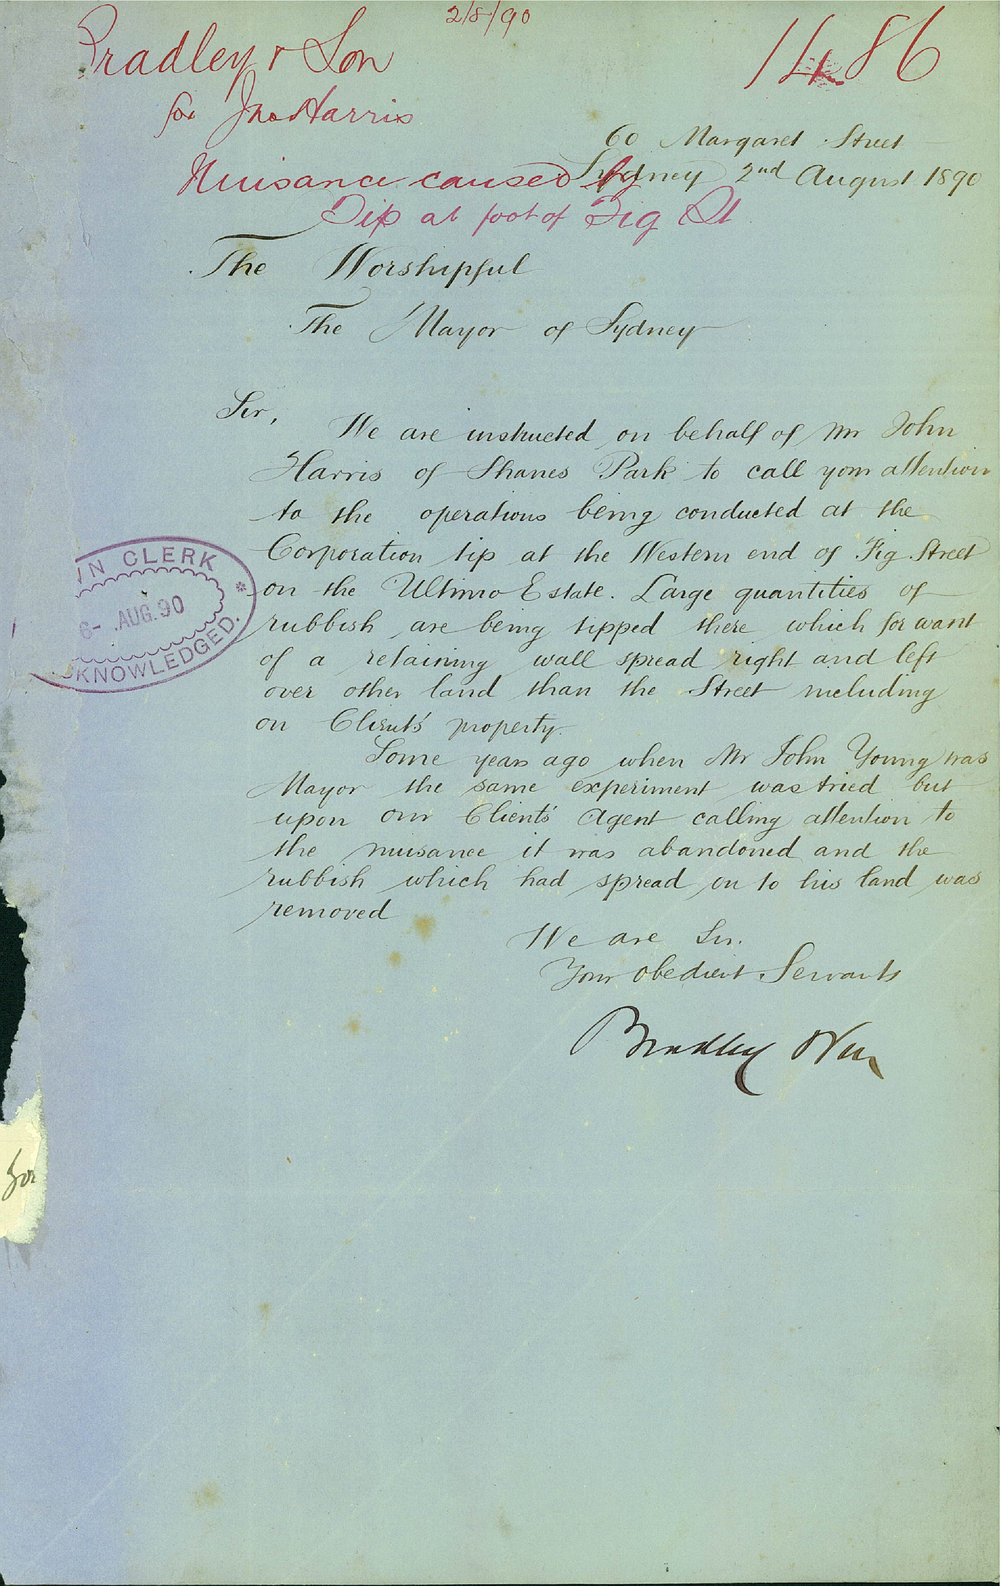 2/8/90
Bradley & Son
1486
for Jno Harris
60 Margaret Street
Sydney 2nd August 1890
Nuisance caused by
Tip at foot of Fig St
The Worshipful
The Mayor of Sydney
Sir,
We are instructed on behalf of Mr John
Harris of Shanes Park to call your attention
to the operations being conducted at the
Corporation tip at the Western end of Fig Street
on the Ultimo Estate. Large quantities of
rubbish are being tipped there which for want
of a retaining wall spread right and left
over other land than the Street including
on Clients' property.
Some years ago when Mr John Young was
Mayor the same experiment was tried but
upon our Client's Agent calling attention to
the nuisance it was abandoned and the
rubbish which had spread on to his land was
removed
We are Sir.
Your obedient Servants
Bradley & Son
N CLERK
6- AUG. 90
KNOWLEDGED.
for